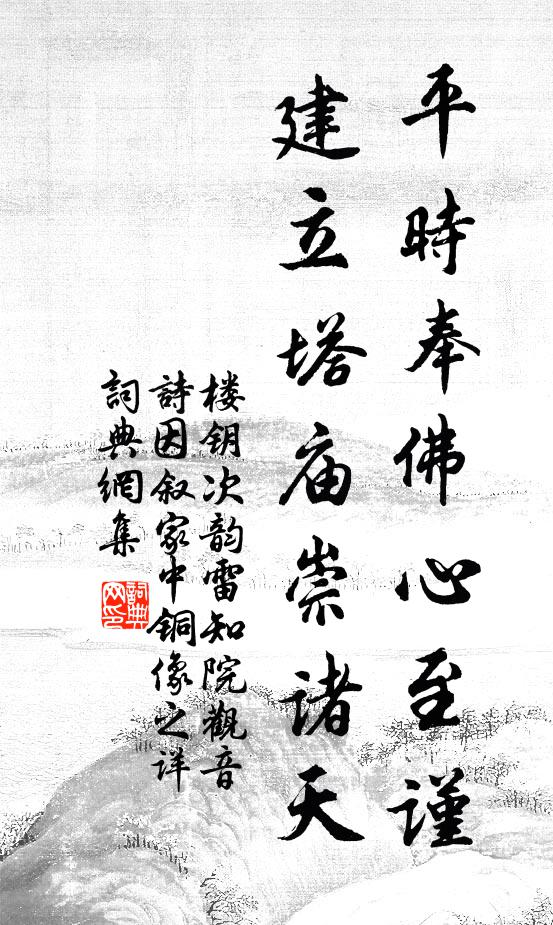 平時奉佛心至謹
建立塔庙崇诸天
楼钥次韵雷知院觀音
詩因叙家中铜像之详
詞典網集
詞典
网印